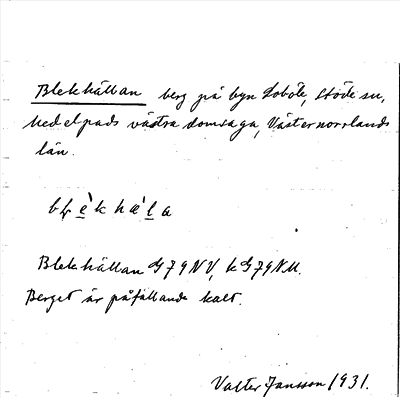 Blekhällan berg på byn Loböle, Stöde sn,
Medelpads västra domsaga, Västernorrlands
län.
Blekhällan G79NV, kG79NU.
Berget är påfallande kalt.
Valter Jansson 1931.